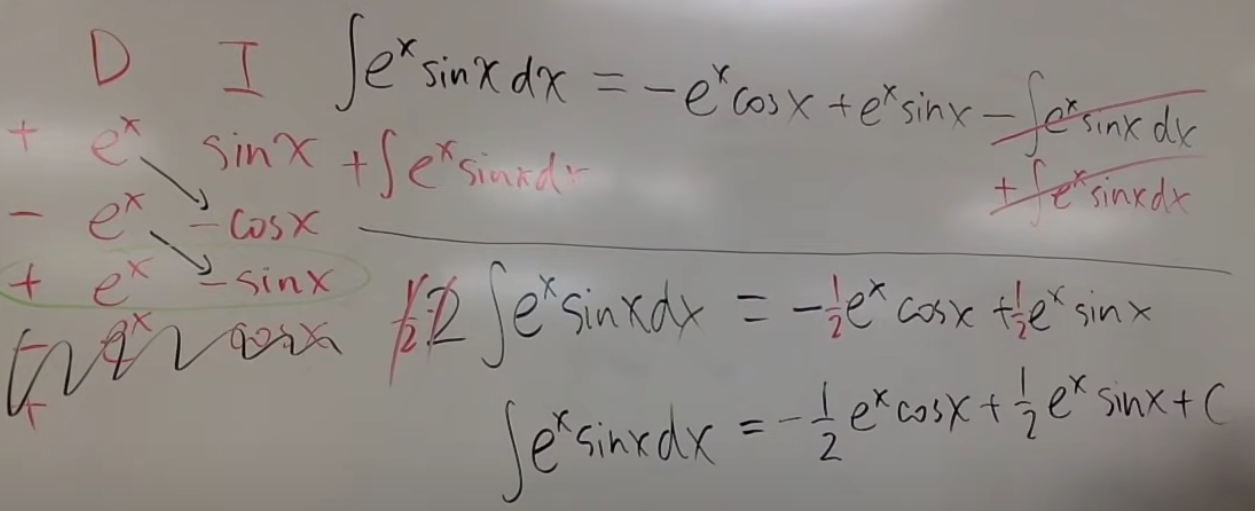 D I ∫eˣ sinx dx = -eˣ cosx + eˣ sinx - ∫eˣ sinx dx
+ eˣ sinx + ∫eˣ sinx dx + ∫eˣ sinx dx
- eˣ -cosx
+ eˣ -sinx
- eˣ cosx
+
½·2 ∫eˣ sinx dx = -½eˣ cosx + ½eˣ sinx
∫eˣ sinx dx = -½ eˣ cosx + ½ eˣ sinx + C